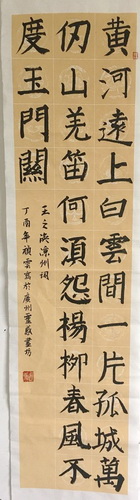 黄河遠上白雲間一片孤城萬
仞山羌笛何須怨楊柳春風不
度玉門關
王之渙涼州詞
丁酉年禎雲寫於廣州靈感畫坊